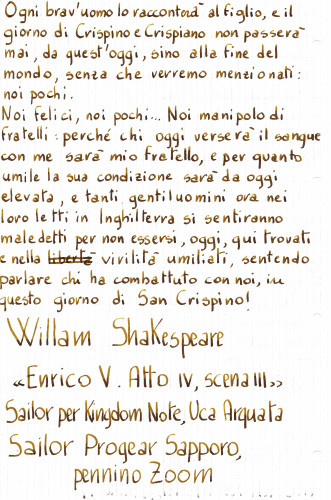 Ogni brav'uomo lo racconterà al figlio, e il
giorno di Crispino e Crispiano non passerà
mai, da quest'oggi, sino alla fine del
mondo, senza che verremo menzionati:
noi pochi.
Noi felici, noi pochi... Noi manipolo di
fratelli: perché chi oggi verserà il sangue
con me sarà mio fratello, e per quanto
umile la sua condizione sarà da oggi
elevata, e tanti gentiluomini ora nei
loro letti in Inghilterra si sentiranno
maledetti per non essersi, oggi, qui trovati
e nella libertà virilità umiliati, sentendo
parlare chi ha combattuto con noi, in
questo giorno di San Crispino!
Willam Shakespeare
«Enrico V. Atto IV, scena III»
Sailor per Kingdom Note, Uca Arquata
Sailor Progear Sapporo,
pennino Zoom